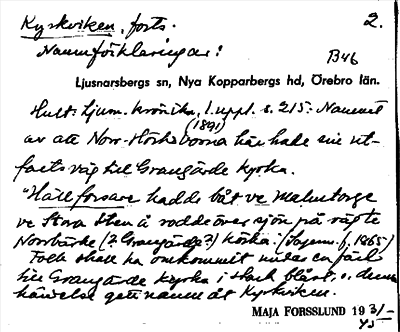 Kyrkviken, forts. 2.
Namnförklaringar:
B46
Ljusnarsbergs sn, Nya Kopparbergs hd, Örebro län.
Hult: Ljusn. krönika, 1. uppl. s. 215: Namnet
(1891)
av att Norr-Hörksborna här hade sin ut-
fartsväg till Grangärde kyrka.
"Hällforsare hadde båt ve Malmtorge
ve Stora Sten å rodde över sjön på väg te
Norrbärke (? Grangärde?) körka". (Sagesm. f. 1865)
Folk skall ha omkommit under en färd
till Grangärde kyrka i stark blåst, o. denna
händelse gett namn åt Kyrkviken.
MAJA FORSSLUND 1931/-
45